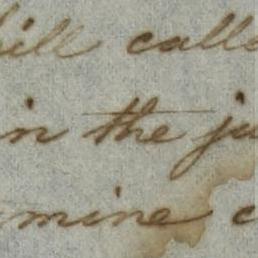 hill calle
in the ju
mine c